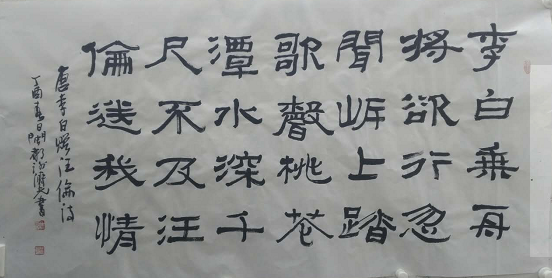 李白乘舟
將欲行忽
聞岸上踏
歌聲桃花
潭水深千
尺不及汪
倫送我情
唐李白贈汪倫詩
丁酉春日書